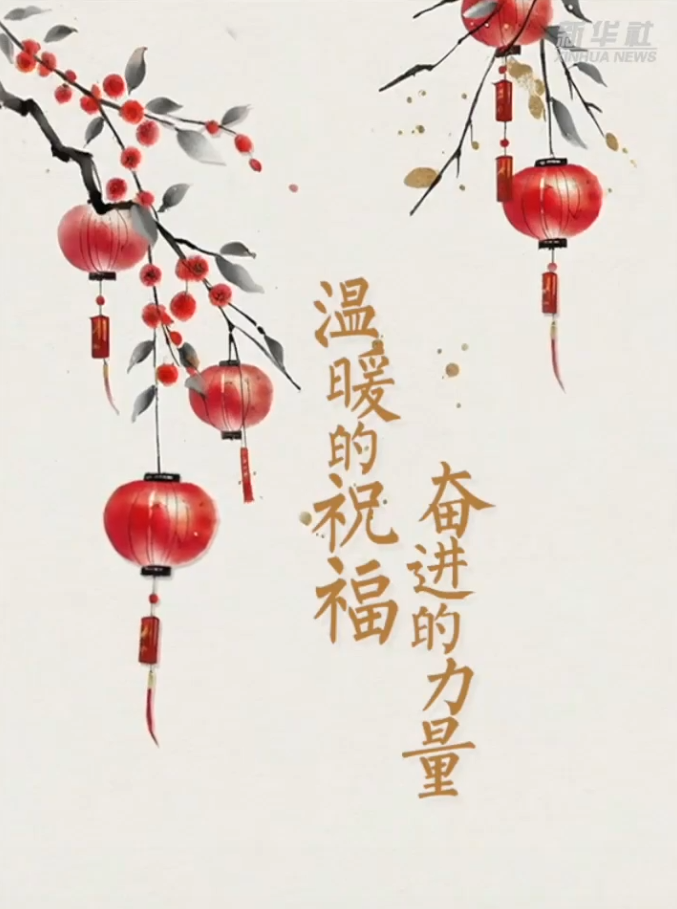 新华社
XINHUA NEWS
温暖的祝福
奋进的力量